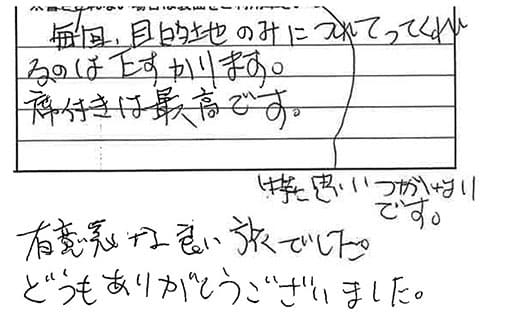 毎回、目的地のみにつれてってくれ
るのはたすかります。
席付きは最高です。
時に思いつがけない
です。
有意義な良い旅でした。
どうもありがとうございました。